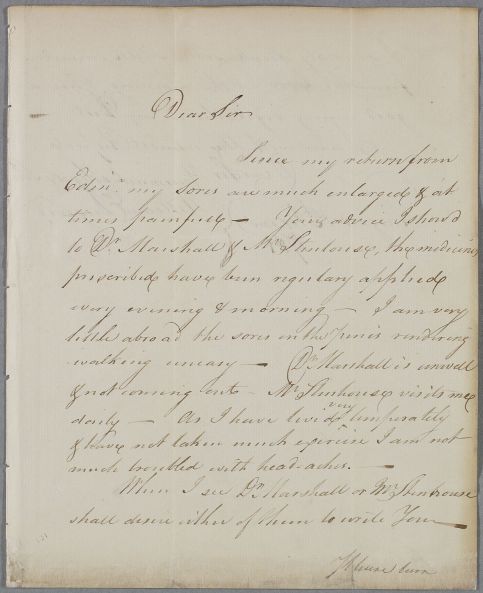 Dear Sir
Since my return from
Edinr. my sores are much enlarged & at
times painful — Your advice I show'd
to Dr. Marshall & Mr Stenhouse, the medicines
prescribed have been regulary applied
every evening & morning — I am very
little abroad the sores on the Penis rendering
walking uneasy — Dr Marshall is unwell
& not coming out — Mr Stenhouse visits me
daily — As I have lived very temperately
& have not taken much exercise I am not
much troubled with headaches. —
When I see Dr Marshall or Mr Stenhouse
shall desire either of them to write You —